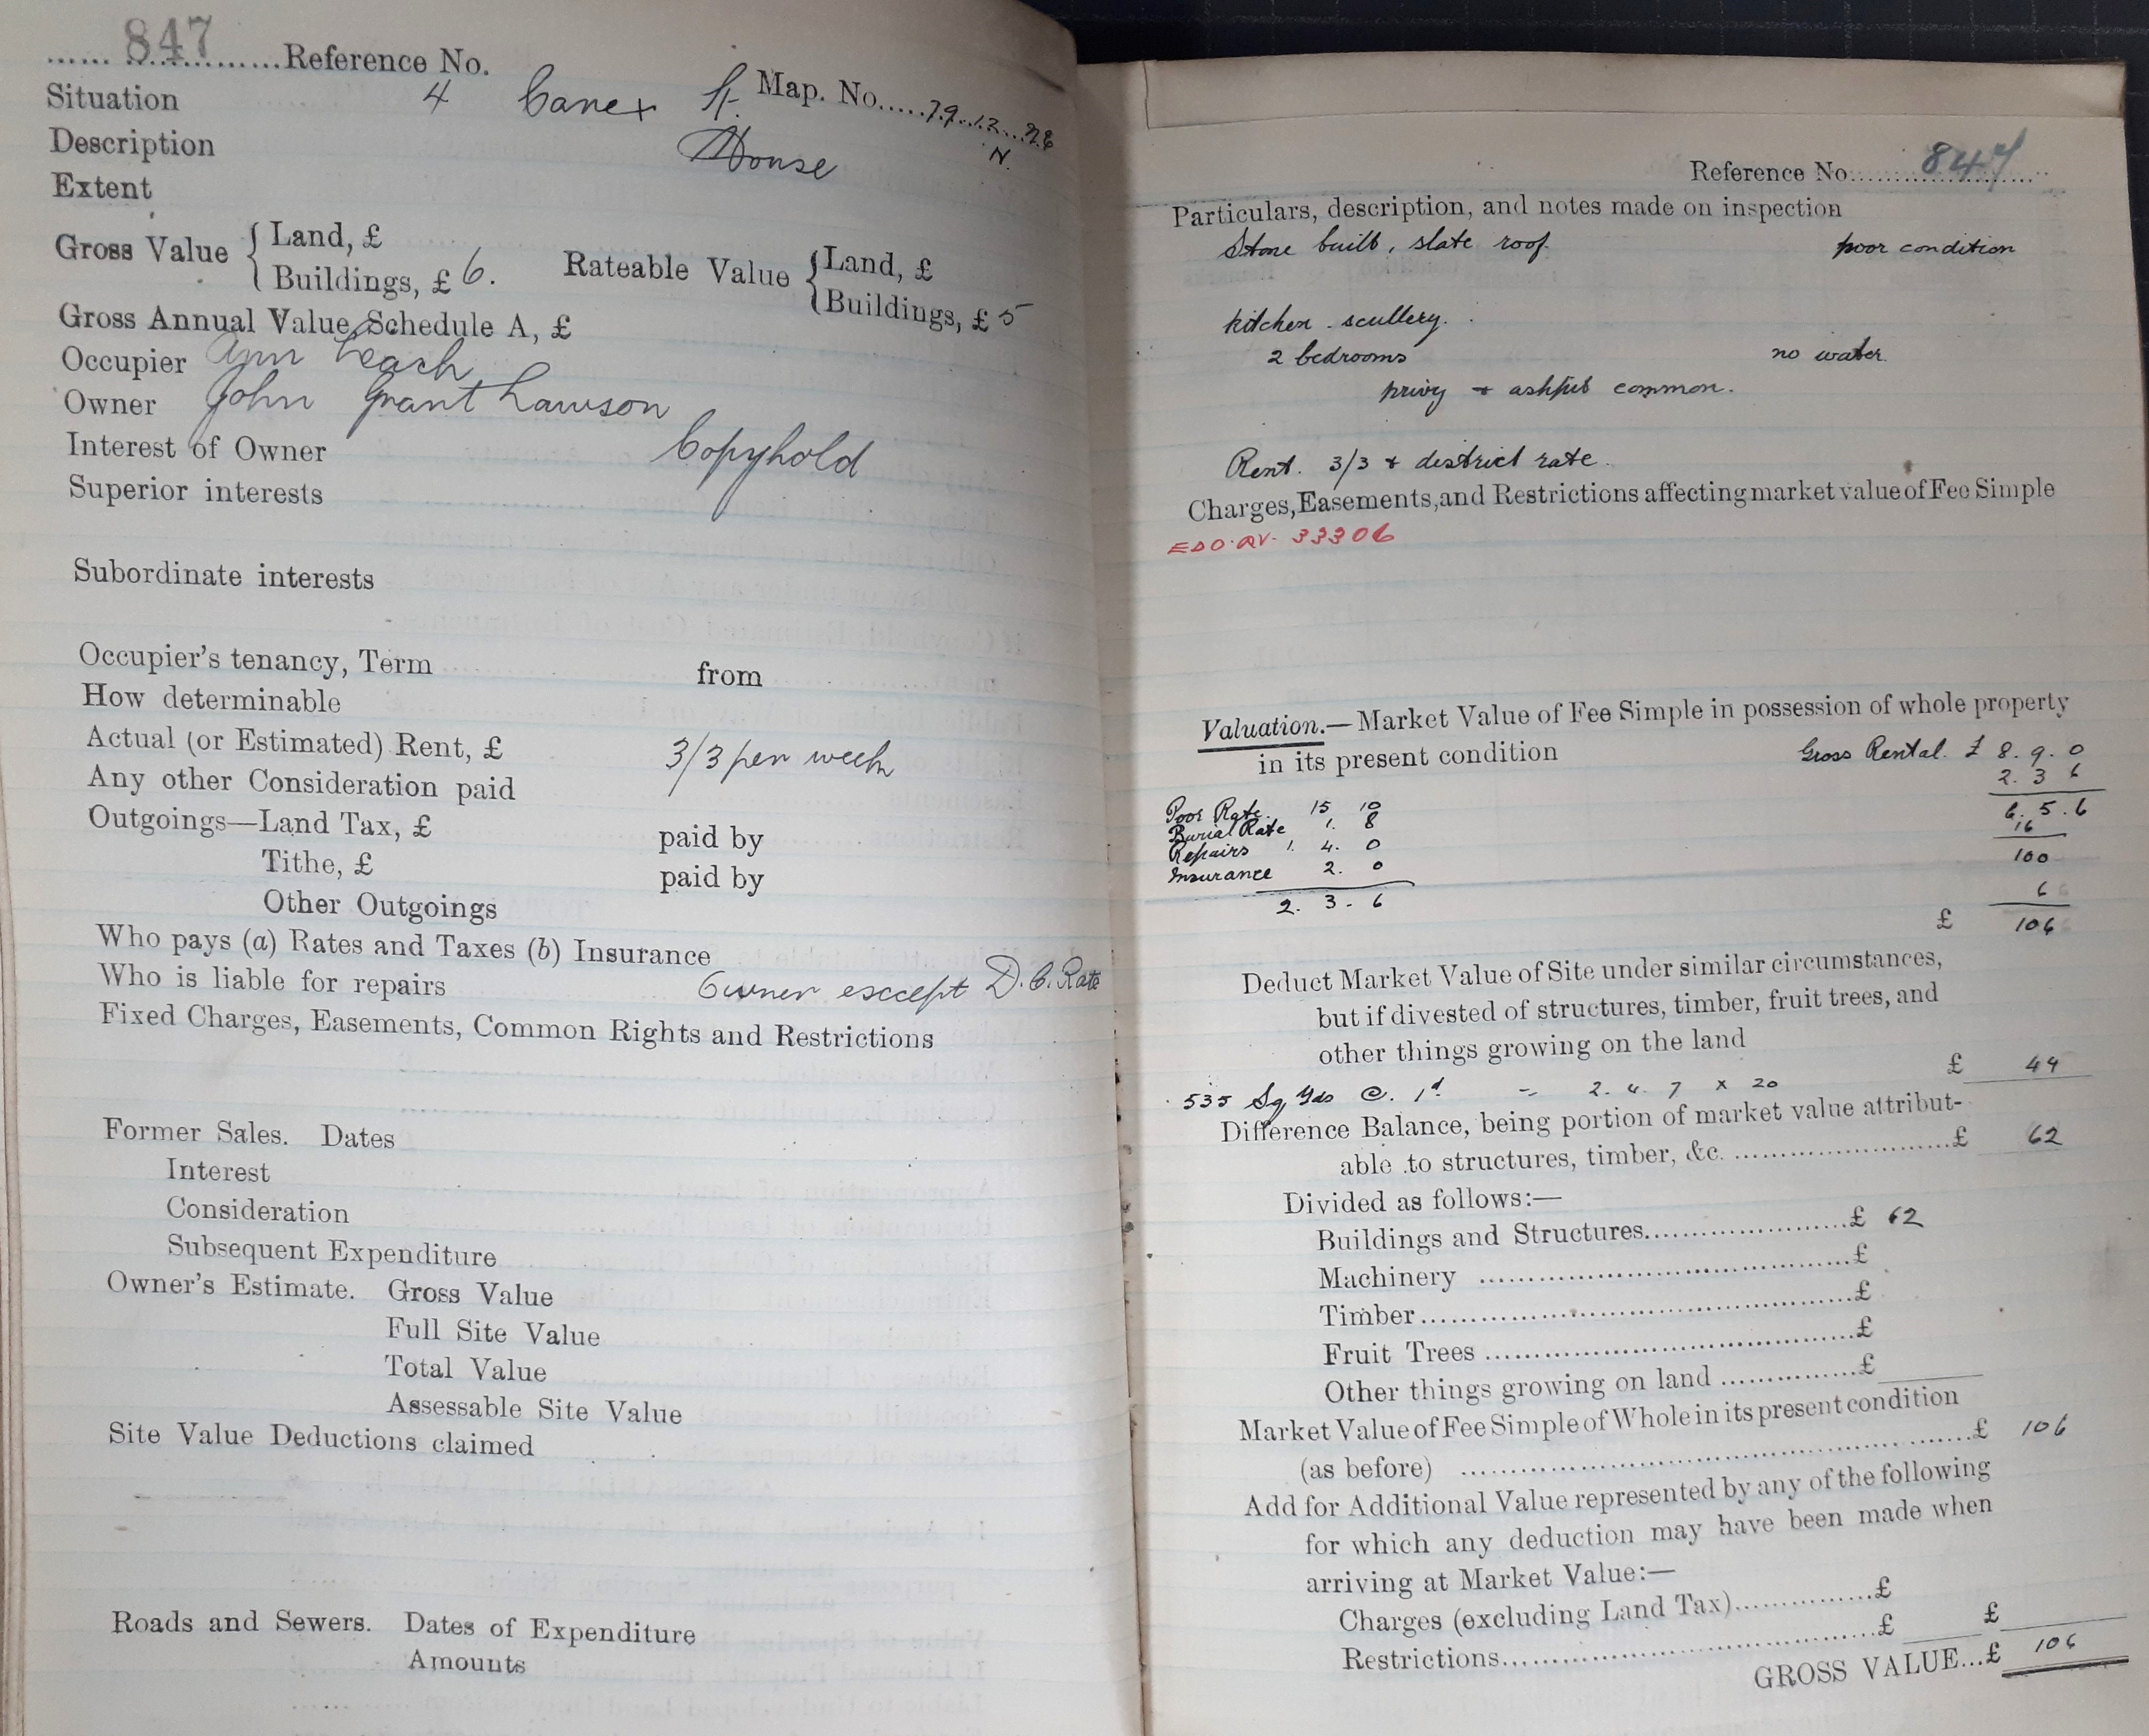 847 Reference No.
Situation 4 St. Map. No. 79.12
Description House N.
Extent
Gross Value { Land, £
Buildings, £ 6. Rateable Value { Land, £
Buildings, £ 5
Gross Annual Value, Schedule A, £
Occupier Ann Leach
Owner John Grant Lawson
Interest of Owner Copyhold
Superior interests
Subordinate interests
Occupier's tenancy, Term from
How determinable
Actual (or Estimated) Rent, £ 3/3 per week
Any other Consideration paid
Outgoings—Land Tax, £ paid by
Tithe, £ paid by
Other Outgoings
Who pays (a) Rates and Taxes (b) Insurance
Who is liable for repairs Owner except D.C. Rate
Fixed Charges, Easements, Common Rights and Restrictions
Former Sales. Dates
Interest
Consideration
Subsequent Expenditure
Owner's Estimate. Gross Value
Full Site Value
Total Value
Assessable Site Value
Site Value Deductions claimed
Roads and Sewers. Dates of Expenditure
Amounts
Reference No. 847
Particulars, description, and notes made on inspection
Stone built, slate roof. poor condition
kitchen . scullery.
2 bedrooms no water.
privy + ashpit common.
Rent. 3/3 + district rate.
Charges, Easements, and Restrictions affecting market value of Fee Simple
33306
Valuation.—Market Value of Fee Simple in possession of whole property
in its present condition Gross Rental. £ 8. 9. 0
2. 3 6
Poor Rate. 15 10 6. 5. 6
Burial Rate 1. 8 16
Repairs 1. 4. 0 100
Insurance 2. 0 6
2. 3. 6 £ 106
Deduct Market Value of Site under similar circumstances,
but if divested of structures, timber, fruit trees, and
other things growing on the land £ 44
535 Sq Yds @. 1d = 2. 4. 7 x 20
Difference Balance, being portion of market value attribut-
able to structures, timber, &c. £ 62
Divided as follows:—
Buildings and Structures £ 62
Machinery £
Timber £
Fruit Trees £
Other things growing on land £
Market Value of Fee Simple of Whole in its present condition
(as before) £ 106
Add for Additional Value represented by any of the following
for which any deduction may have been made when
arriving at Market Value:—
Charges (excluding Land Tax) £
Restrictions £ £
GROSS VALUE...£ 106